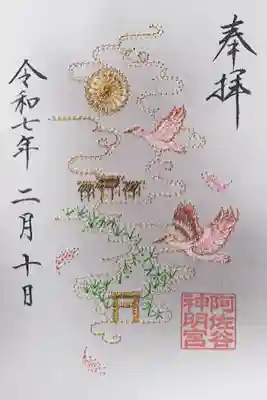 奉拝
阿佐谷
神明宮
令和七年 二月 十日